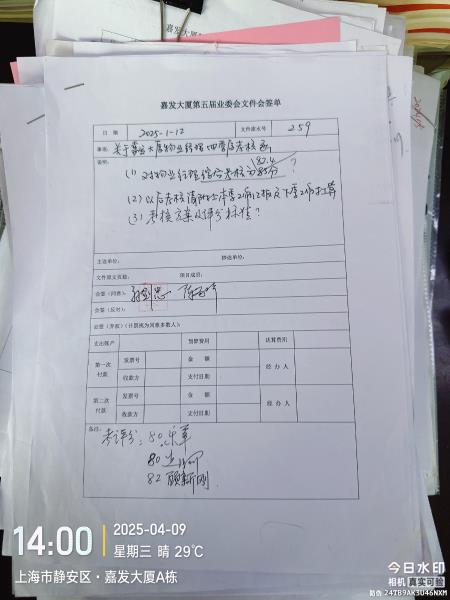 嘉发大厦第五届业委会文件会签单
日 期 2025-1-12 文件流水号 259
事由: 关于嘉发大厦物业经理四季度考核函
82.4
(1) 对物业经理综合考核为85分?
(2) 以后考核请附上本季工作汇报及下季工作打算
(3) 考核方案及评分标准?
主送单位: 抄送单位:
文件原文页数: 项目成员:
会签 (同意):
会签 (反对):
会签 (弃权) (计票视为同意多数人):
支出账户 预算费用 决算费用
第一次付款 发票号 金 额 经 办 人
收款方 支付日期
第二次付款 发票号 金 额 经 办 人
收款方 支付日期
备注:
考评分: 80
80
82 顾新刚
14:00
2025-04-09
星期三 晴 29℃
上海市静安区·嘉发大厦A栋
今日水印
相机 真实可验
防伪 24TB9AK3U46NXM